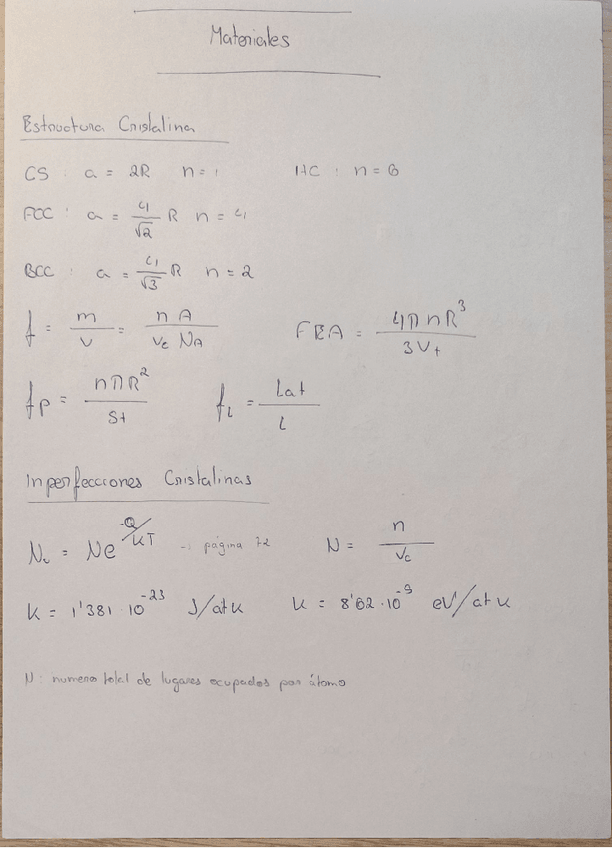 Materiales
Estructura Cristalina
CS : a = 2R n = 1 HC : n = 6
FCC : a = 4/√2 R n = 4
BCC : a = 4/√3 R n = 2
f = m/v = n A/Vc NA FEA = 4π n R³/3Vt
fp = nπR²/St fL = Lat/L
Inperfecciones Cristalinas
Nv = Ne^-Q/KT → página 72 N = n/Vc
K = 1'381 · 10^-23 J/at K K = 8'62 · 10^-5 eV/at K
N : numero total de lugares ocupados por átomo